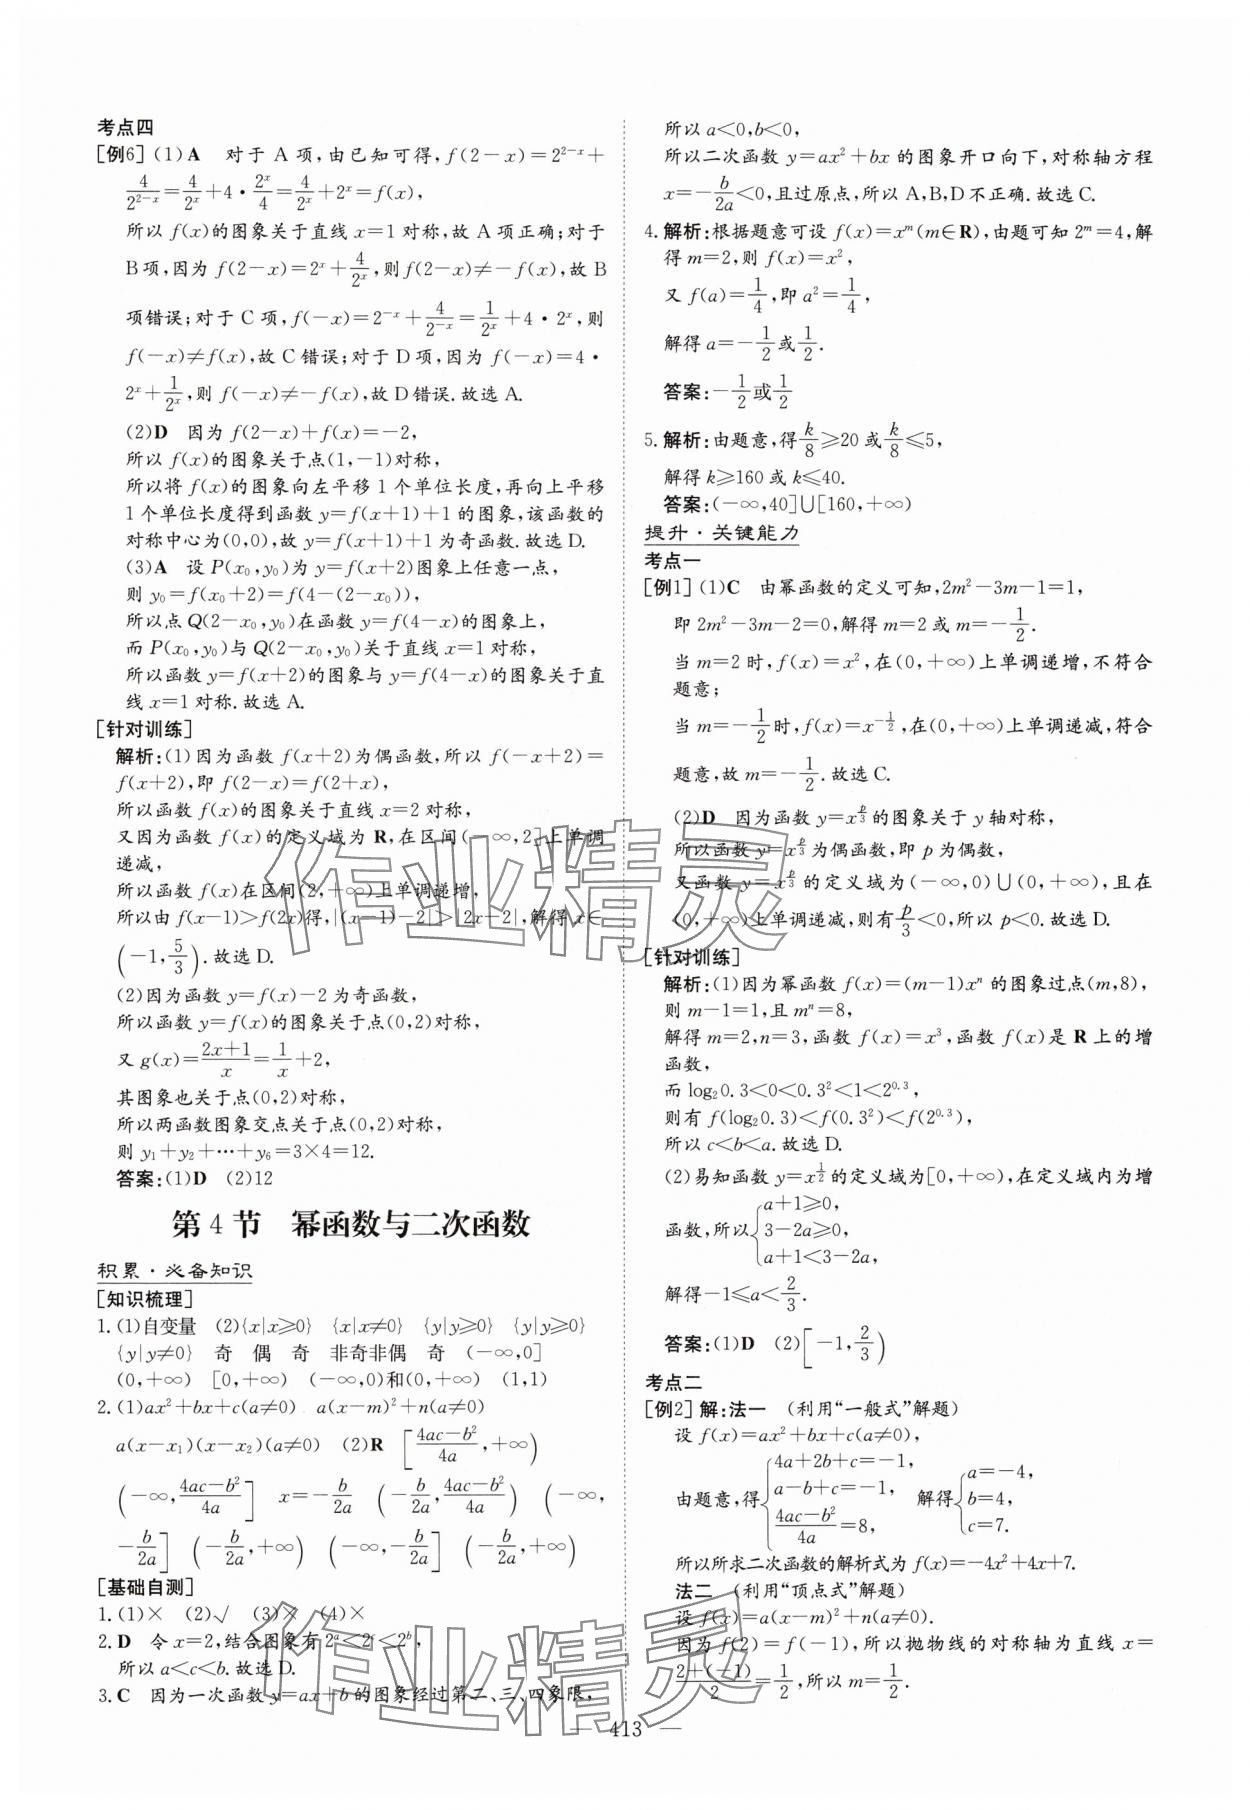 考点四
[例6] (1)A 对于 A 项,由已知可得, f(2－x)=2^{2－x}+
4/2^{2－x}=4/2^x+4·2^x/4=4/2^x+2^x=f(x),
所以 f(x)的图象关于直线 x=1 对称,故 A 项正确;对于
B项,因为 f(2－x)=2^x+4/2^x,则f(2－x)≠－f(x),故 B
项错误;对于 C 项,f(－x)=2^{－x}+4/2^{－x}=1/2^x+4·2^x,则
f(－x)≠f(x),故 C 错误;对于 D 项,因为 f(－x)=4·
2^x+1/2^x,则 f(－x)≠－f(x),故 D 错误.故选 A.
(2)D 因为 f(2－x)+f(x)=－2,
所以 f(x)的图象关于点(1,－1)对称,
所以将 f(x)的图象向左平移 1 个单位长度,再向上平移
1 个单位长度得到函数 y=f(x+1)+1 的图象,该函数的
对称中心为(0,0),故 y=f(x+1)+1 为奇函数.故选 D.
(3)A 设 P(x₀,y₀)为 y=f(x+2)图象上任意一点,
则 y₀=f(x₀+2)=f(4－(2－x₀)),
所以点 Q(2－x₀,y₀)在函数 y=f(4－x)的图象上,
而 P(x₀,y₀)与 Q(2－x₀,y₀)关于直线 x=1 对称,
所以函数 y=f(x+2)的图象与 y=f(4－x)的图象关于直
线 x=1 对称.故选 A.
[针对训练]
解析:(1)因为函数 f(x+2)为偶函数,所以 f(－x+2)=
f(x+2),即 f(2－x)=f(2+x),
所以函数 f(x)的图象关于直线 x=2 对称,
又因为函数 f(x)的定义域为 R,在区间(－∞,2]上单调
递减,
所以函数 f(x)在区间(2,+∞)上单调递增,
所以由 f(x－1)>f(2x)得,|(x－1)－2|>|2x－2|,解得 x∈
(－1,5/3).故选 D.
(2)因为函数 y=f(x)－2 为奇函数,
所以函数 y=f(x)的图象关于点(0,2)对称,
又 g(x)=(2x+1)/x=1/x+2,
其图象也关于点(0,2)对称,
所以两函数图象交点关于点(0,2)对称,
则 y₁+y₂+⋯+y₆=3×4=12.
答案:(1)D (2)12
第 4 节 幂函数与二次函数
积累·必备知识
[知识梳理]
1. (1)自变量 (2){x|x≥0} {x|x≠0} {y|y≥0} {y|y≥0}
{y|y≠0} 奇 偶 奇 非奇非偶 奇 (－∞,0]
(0,+∞) [0,+∞) (－∞,0)和(0,+∞) (1,1)
2. (1)ax²+bx+c(a≠0) a(x－m)²+n(a≠0)
a(x－x₁)(x－x₂)(a≠0) (2)R [(4ac－b²)/4a,+∞)
(－∞,(4ac－b²)/4a] x=－b/2a (－b/2a,(4ac－b²)/4a) (－∞,
－b/2a] (－b/2a,+∞) (－∞,－b/2a] (－b/2a,+∞)
[基础自测]
1. (1)× (2)√ (3)× (4)×
2. D 令 x=2,结合图象有 2^a<2^c<2^b,
所以 a<c<b.故选 D.
3. C 因为一次函数 y=ax+b 的图象经过第二、三、四象限,
所以 a<0,b<0,
所以二次函数 y=ax²+bx 的图象开口向下,对称轴方程
x=－b/2a<0,且过原点,所以 A,B,D 不正确.故选 C.
4. 解析:根据题意可设 f(x)=x^m(m∈R),由题可知 2^m=4,解
得 m=2,则 f(x)=x²,
又 f(a)=1/4,即 a²=1/4,
解得 a=－1/2或1/2.
答案:－1/2或1/2
5. 解析:由题意,得k/8≥20 或k/8≤5,
解得 k≥160 或 k≤40.
答案:(－∞,40]∪[160,+∞)
提升·关键能力
考点一
[例1] (1)C 由幂函数的定义可知,2m²－3m－1=1,
即 2m²－3m－2=0,解得 m=2 或 m=－1/2.
当 m=2 时,f(x)=x²,在(0,+∞)上单调递增,不符合
题意;
当 m=－1/2时,f(x)=x^{－1/2},在(0,+∞)上单调递减,符合
题意,故 m=－1/2.故选 C.
(2)D 因为函数 y=x^{p/3}的图象关于 y 轴对称,
所以函数 y=x^{p/3}为偶函数,即 p 为偶数,
又函数 y=x^{p/3}的定义域为(－∞,0)∪(0,+∞),且在
(0,+∞)上单调递减,则有p/3<0,所以 p<0.故选 D.
[针对训练]
解析:(1)因为幂函数 f(x)=(m－1)x^n 的图象过点(m,8),
则 m－1=1,且 m^n=8,
解得 m=2,n=3,函数 f(x)=x³,函数 f(x)是 R 上的增
函数,
而 log₂0.3<0<0.3²<1<2^{0.3},
则有 f(log₂0.3)<f(0.3²)<f(2^{0.3}),
所以 c<b<a.故选 D.
(2)易知函数 y=x^{1/2}的定义域为[0,+∞),在定义域内为增
函数,所以{a+1≥0, 3－2a≥0, a+1<3－2a,
解得－1≤a<2/3.
答案:(1)D (2)[－1,2/3)
考点二
[例2] 解:法一 (利用“一般式”解题)
设 f(x)=ax²+bx+c(a≠0),
由题意,得{4a+2b+c=－1, a－b+c=－1, (4ac－b²)/4a=8, 解得{a=－4, b=4, c=7.
所以所求二次函数的解析式为 f(x)=－4x²+4x+7.
法二 (利用“顶点式”解题)
设 f(x)=a(x－m)²+n(a≠0).
因为 f(2)=f(－1),所以抛物线的对称轴为直线 x=
(2+(－1))/2=1/2,所以 m=1/2.
— 413 —
作业精灵
作业精灵